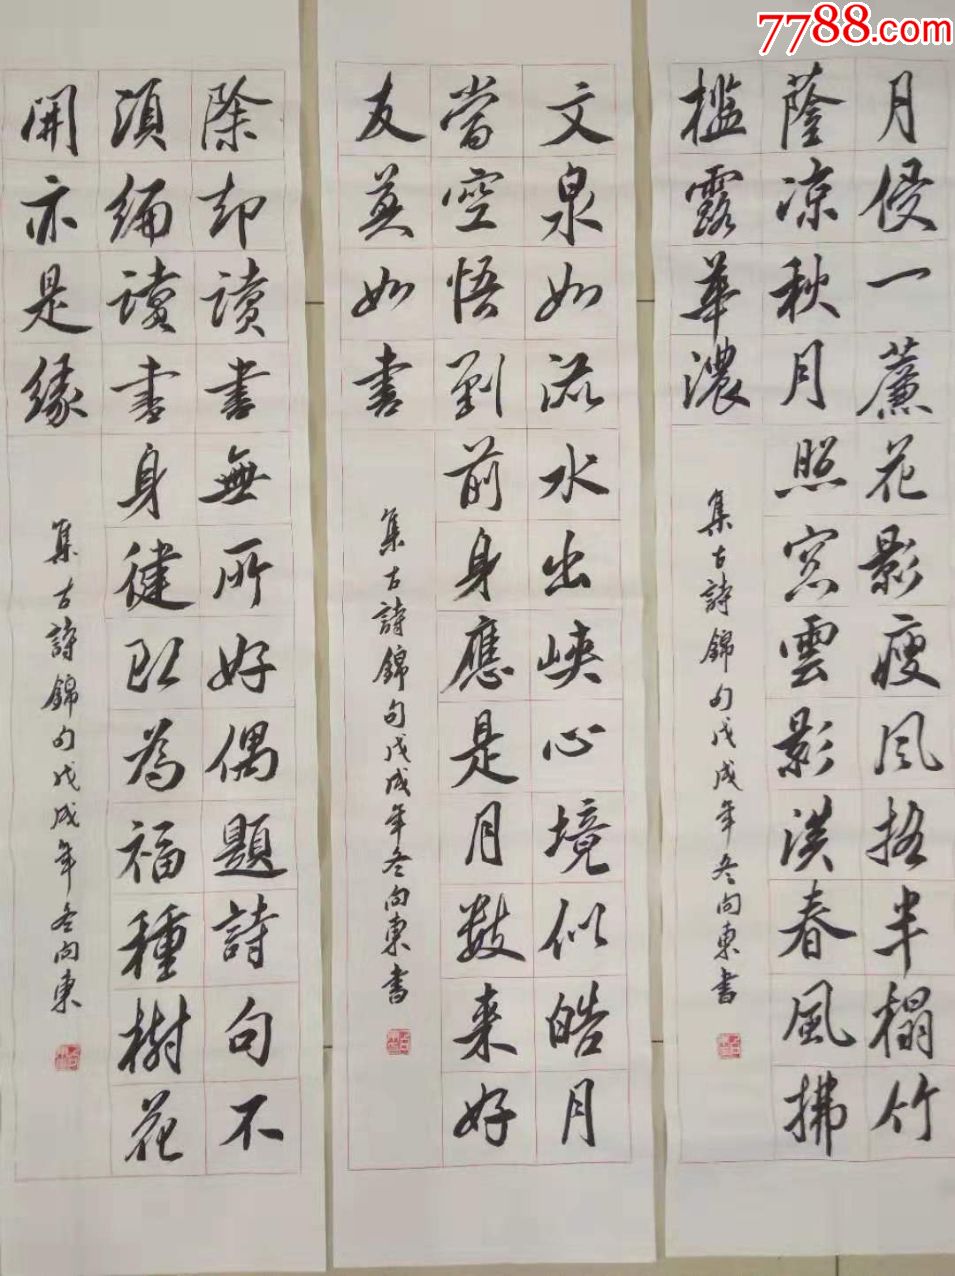 7788.com
月侵一簾花影瘦风摇半榻竹
蔭凉秋月照窓雲影淡春風拂
槛露華濃
集古詩錦句戊戌年冬向東書
文泉如流水出峡心境似皓月
當空悟到前身應是月數来好
友莫如書
集古詩錦句戊戌年冬向東書
除却讀書無所好偶題詩句不
須編讀書身健即為福種樹花
開亦是緣
集古詩錦句戊戌年冬向東